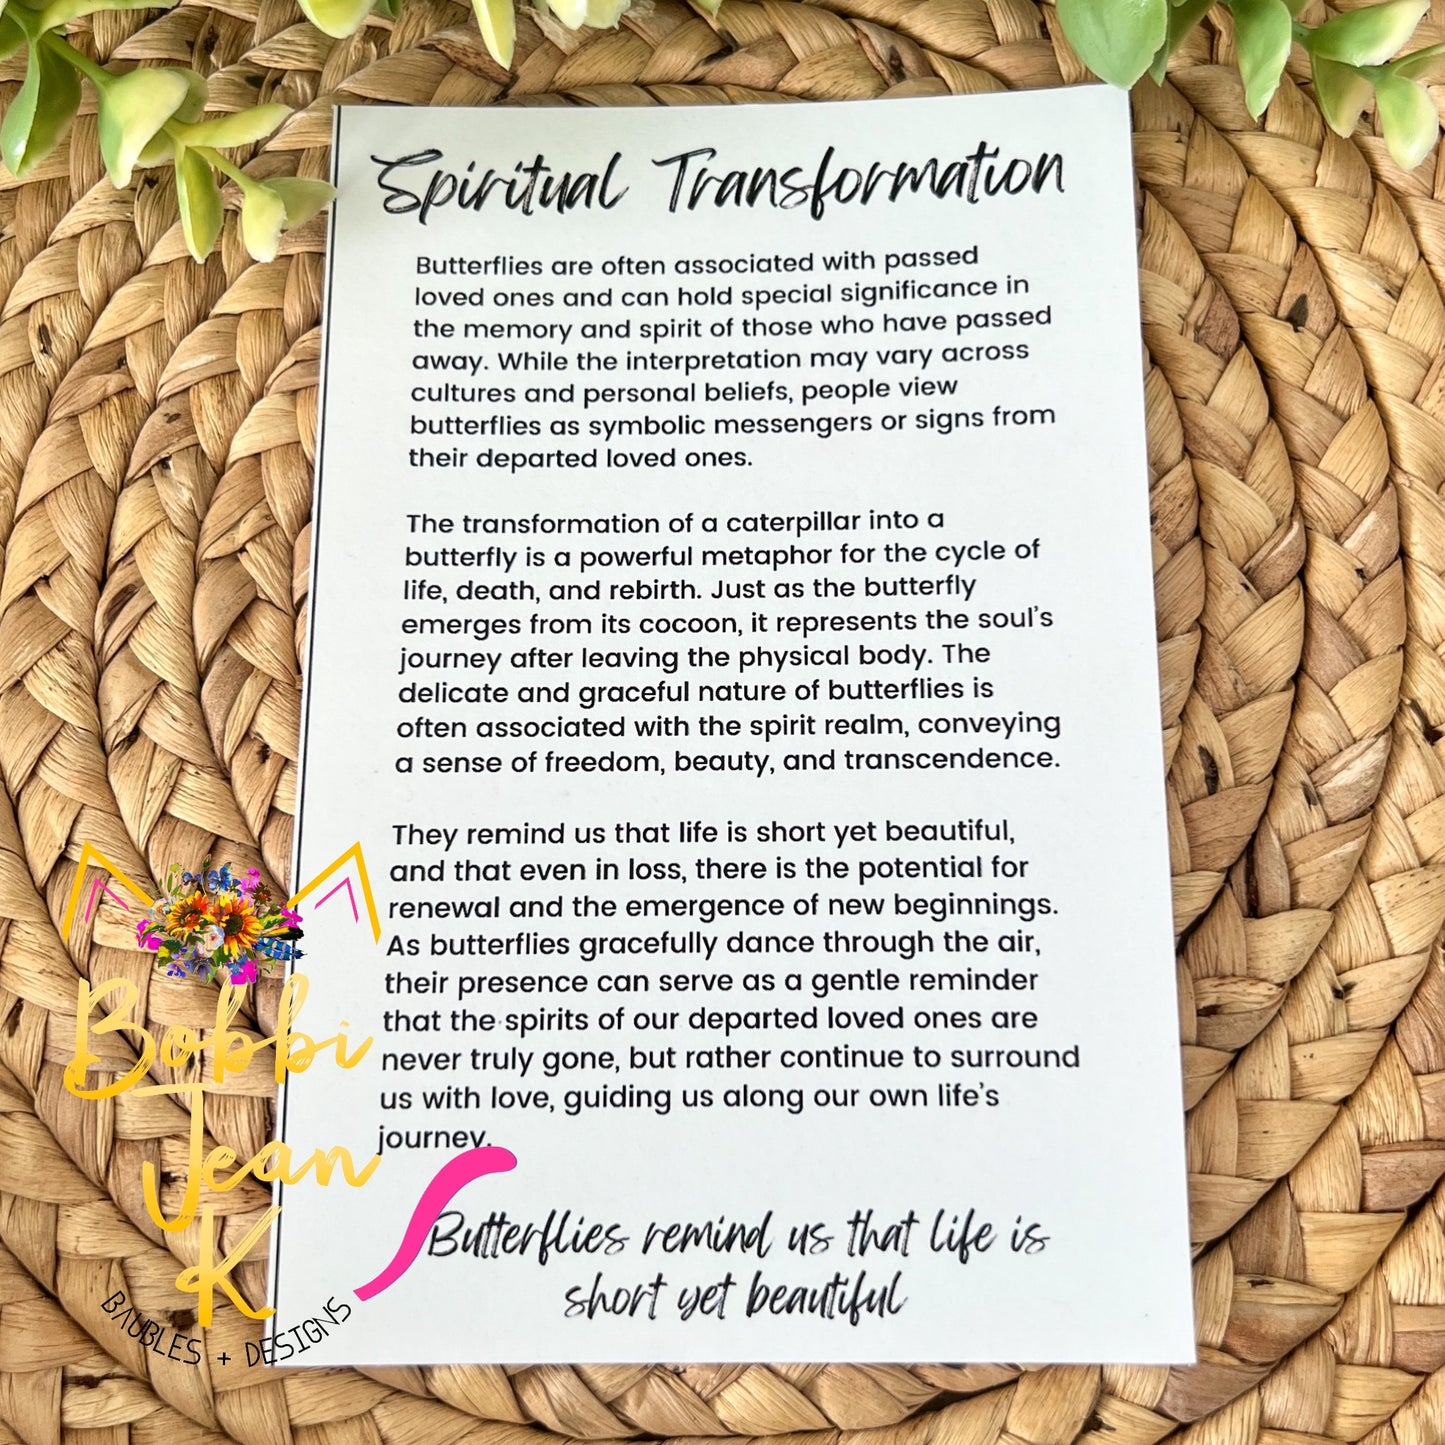 Spiritual Transformation
Butterflies are often associated with passed
loved ones and can hold special significance in
the memory and spirit of those who have passed
away. While the interpretation may vary across
cultures and personal beliefs, people view
butterflies as symbolic messengers or signs from
their departed loved ones.
The transformation of a caterpillar into a
butterfly is a powerful metaphor for the cycle of
life, death, and rebirth. Just as the butterfly
emerges from its cocoon, it represents the soul's
journey after leaving the physical body. The
delicate and graceful nature of butterflies is
often associated with the spirit realm, conveying
a sense of freedom, beauty, and transcendence.
They remind us that life is short yet beautiful,
and that even in loss, there is the potential for
renewal and the emergence of new beginnings.
As butterflies gracefully dance through the air,
their presence can serve as a gentle reminder
that the spirits of our departed loved ones are
never truly gone, but rather continue to surround
us with love, guiding us along our own life's
journey.
Butterflies remind us that life is
short yet beautiful
Bobbi
Jean
K
BAUBLES + DESIGNS